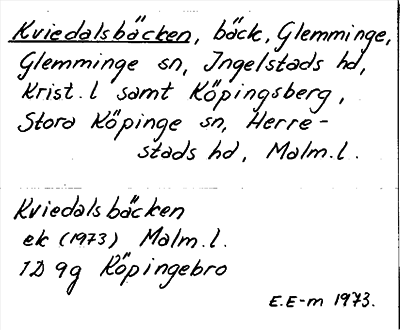 Kviedalsbäcken, bäck, Glemminge,
Glemminge sn, Ingelstads hd,
Krist. l samt Köpingsberg,
Stora Köpinge sn, Herre-
stads hd, Malm. l.
Kviedalsbäcken
ek (1973) Malm. l.
1D 9g Köpingebro
E.E-m 1973.